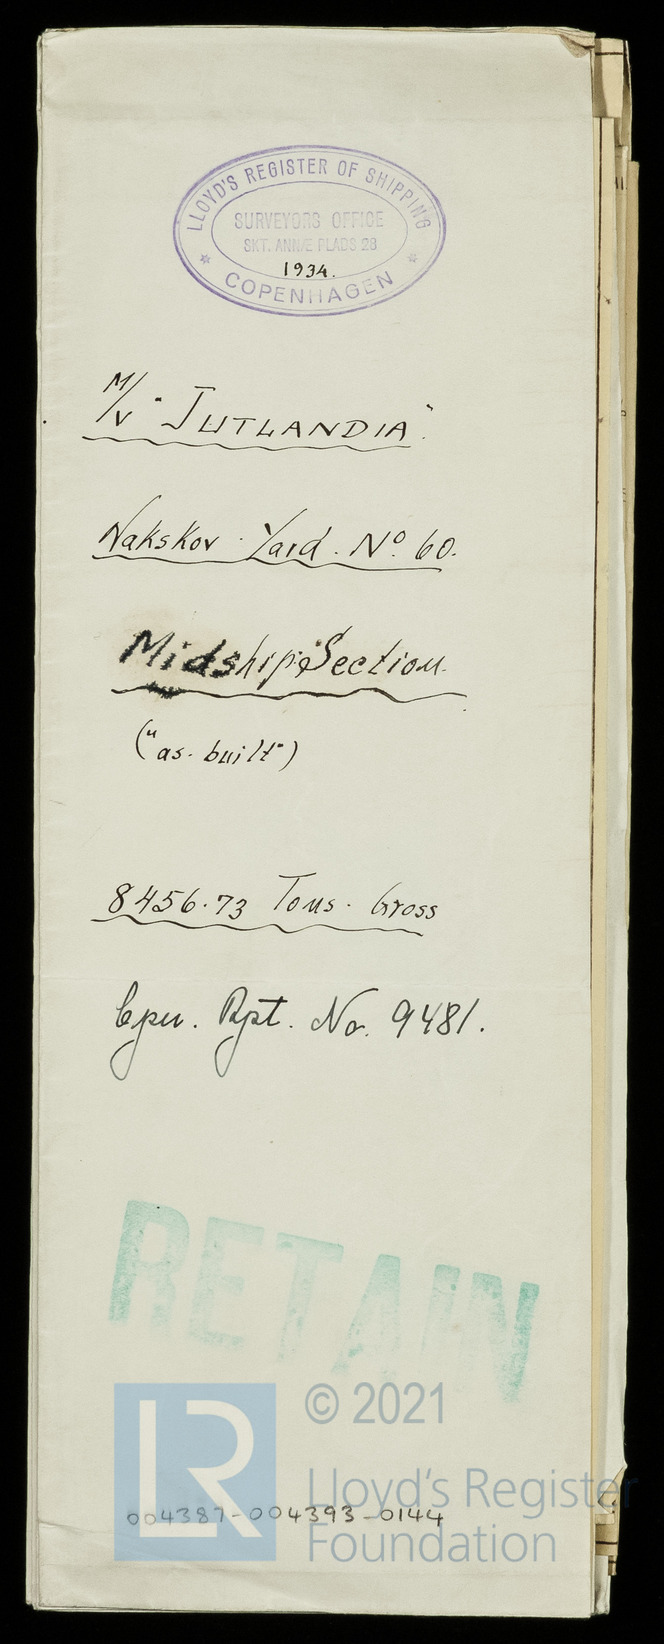 LLOYD'S REGISTER OF SHIPPING
SURVEYORS OFFICE
SKT. ANNÆ PLADS 28
1934.
* COPENHAGEN *
M/V "JUTLANDIA".
Nakskov Yard. Nº. 60.
Midship Section.
("as. built")
8456.73 Tons. Gross
Cpn. Rpt. No. 9481.
RETAIN
LR
© 2021
Lloyd's Register
004387-004393-0144
Foundation